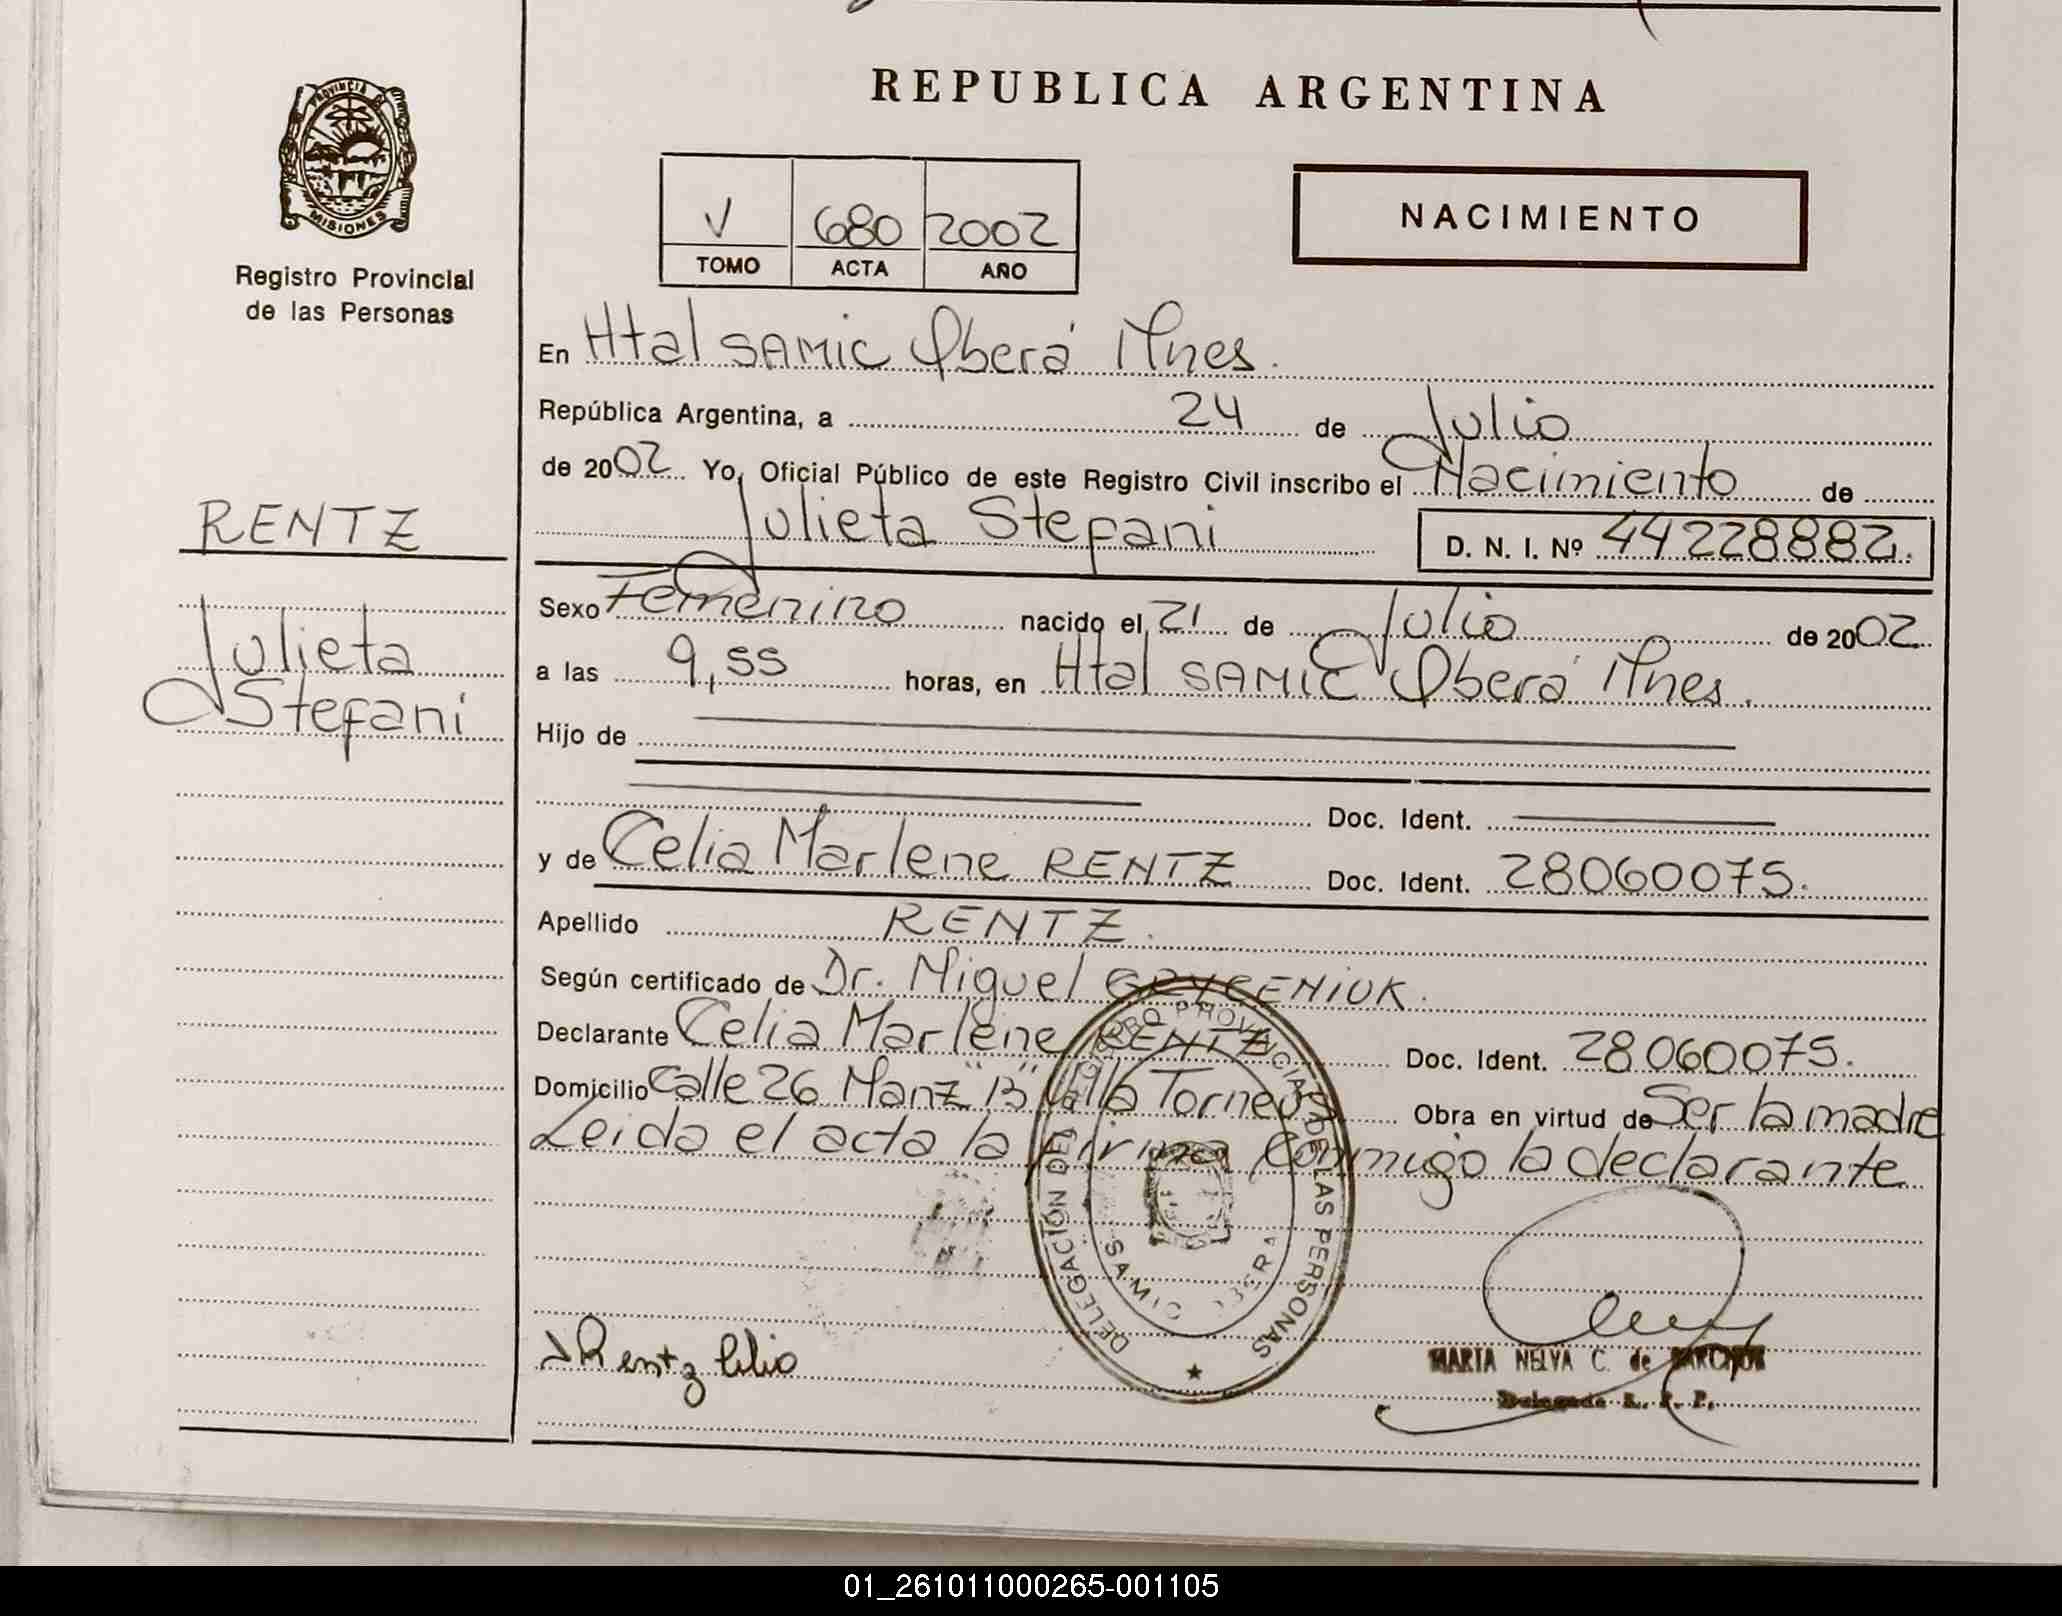 REPUBLICA ARGENTINA
PROVINCIA DE
MISIONES
Registro Provincial
de las Personas
V 680 2002
TOMO ACTA AÑO
NACIMIENTO
En Htal SAMIC Oberá Mnes.
República Argentina, a 24 de Julio
de 2002 Yo, Oficial Público de este Registro Civil inscribo el Nacimiento de
Julieta Stefani D. N. I. Nº 44228882.
RENTZ
Julieta
Stefani
Sexo Femenino nacido el 21 de Julio de 2002
a las 9,55 horas, en Htal SAMIC Oberá Mnes.
Hijo de
Doc. Ident.
y de Celia Marlene RENTZ Doc. Ident. 28060075.
Apellido RENTZ.
Según certificado de Dr. Miguel
Declarante Celia Marlene RENTZ Doc. Ident. 28060075.
Domicilio Calle 26 Manz "B" Villa Torneus Obra en virtud de Ser la madre
Leida el acta la firma conmigo la declarante
DELEGACIÓN DEL REGISTRO PROVINCIAL DE LAS PERSONAS
SAMIC OBERA
Rentz Celia
MARIA NELVA C. de
Delegada R. P. P.
01_261011000265-001105